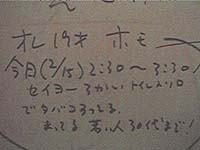 オレ17才 ホモ
今日(2/15) 2:30～3:30
セイヨー3かい トイレ入り口
でタバコすってる
まってる 若い人30代まで!